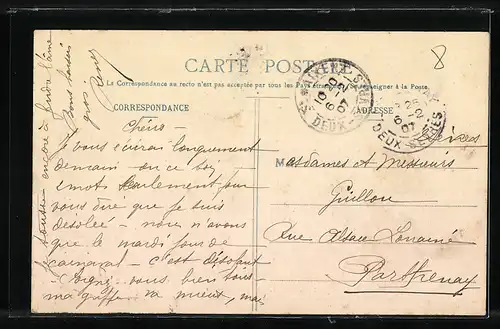 CARTE POSTALE
La Correspondance au recto n'est pas acceptée par tous les Pays étrangers se renseigner à la Poste.
CORRESPONDANCE
ADRESSE
8
DEUX-
10 20
6 -2
07
25
6 -2
07
DEUX-SÈVRES
Chéris -
Je vous écrirai longuement
demain ou ce soir,
mots seulement pour
vous dire que je suis
désolée - nous n'avons
que le mardi jour de
carnaval - c'est désolant
Soignez-vous bien tous
ma griffe va mieux, mais
je tousse encore à
Bons baisers
gros
M
Mesdames et Messieurs
Guillon
Rue Alsace Lorraine
Parthenay
Sèvres